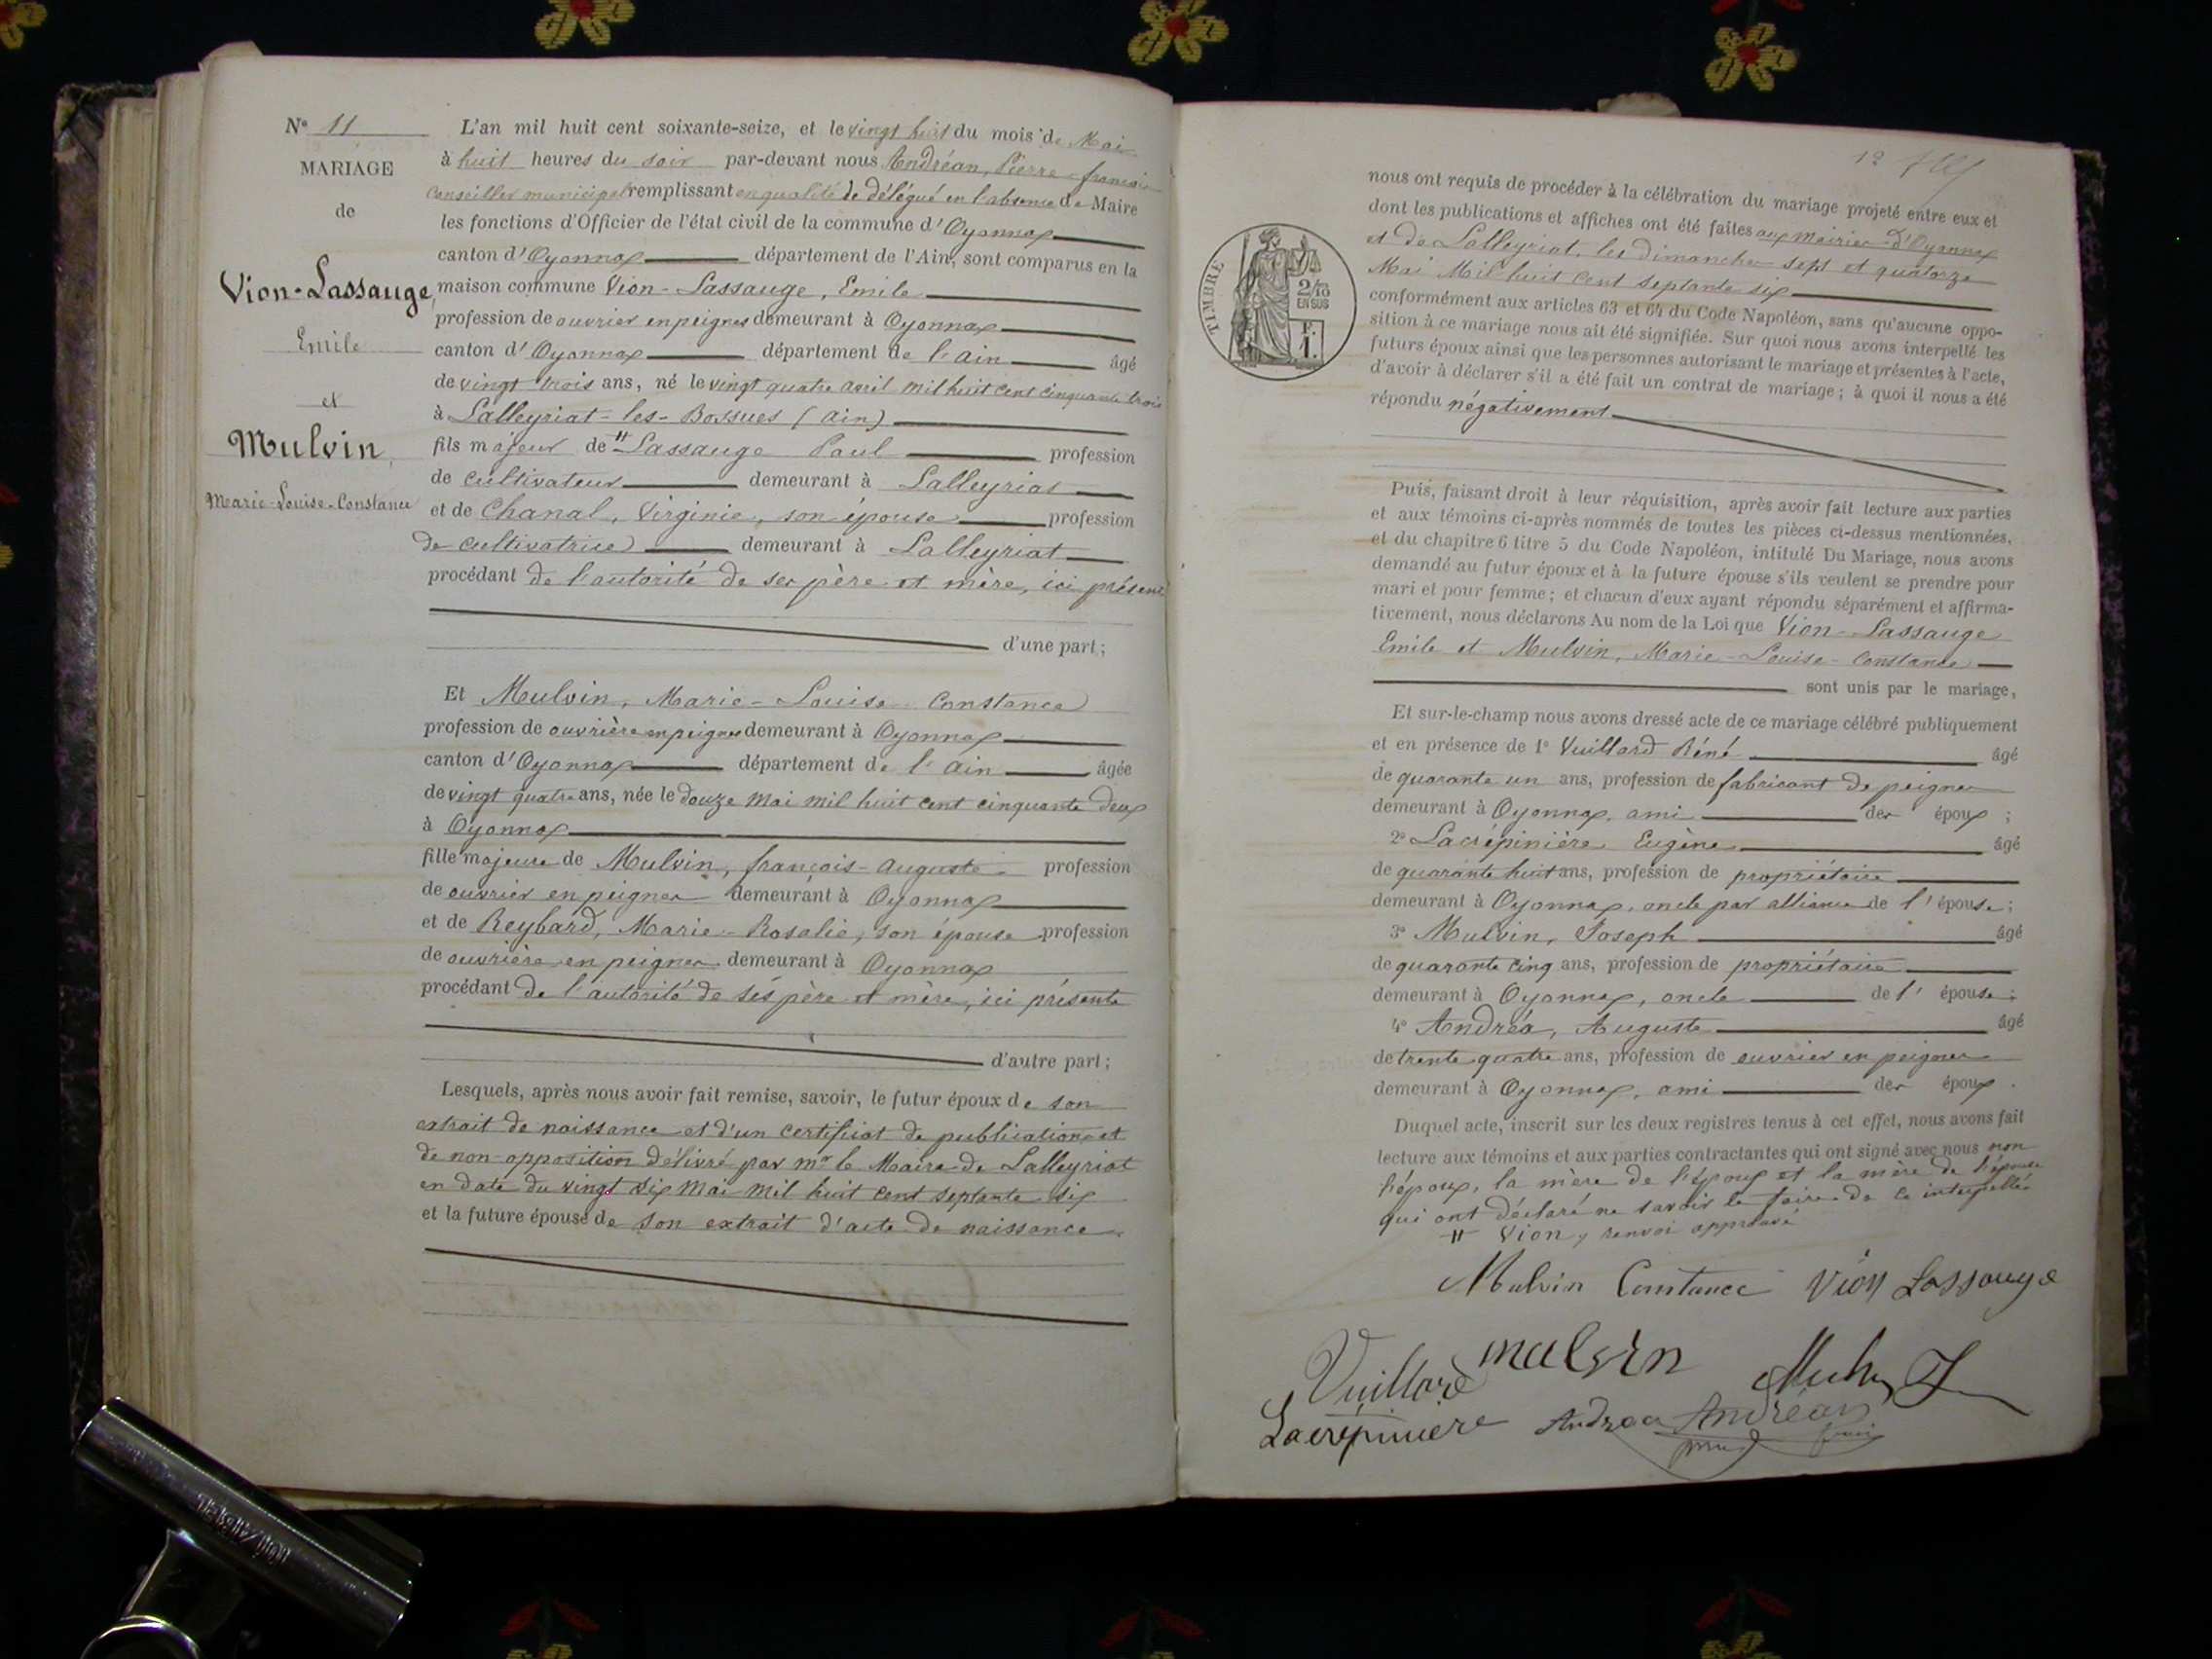 N° 11
MARIAGE
de
Vion-Lassauge,
Emile
et
Mulvin,
Marie-Louise-Constance
L'an mil huit cent soixante-seize, et le vingt huit du mois de Mai
à huit heures du soir par-devant nous Andréan, Pierre-françois
Conseiller municipal remplissant en qualité de délégué en l'absence de Maire
les fonctions d'Officier de l'état civil de la commune d'Oyonnax
canton d'Oyonnax département de l'Ain, sont comparus en la
maison commune Vion-Lassauge, Emile
profession de ouvrier en peignes demeurant à Oyonnax
canton d'Oyonnax département de l'ain âgé
de vingt trois ans, né le vingt quatre avril mil huit cent cinquante trois
à Lalleyriat-les-Bossues (ain)
fils majeur de # Lassauge Paul profession
de cultivateur demeurant à Lalleyriat
et de Chanal, Virginie, son épouse profession
de cultivatrice demeurant à Lalleyriat
procédant de l'autorité de ses père et mère, ici présents
d'une part;
Et Mulvin, Marie-Louise Constance
profession de ouvrière en peignes demeurant à Oyonnax
canton d'Oyonnax département de l'ain âgée
de vingt quatre ans, née le douze Mai mil huit cent cinquante deux
à Oyonnax
fille majeure de Mulvin, françois-auguste profession
de ouvrier en peignes demeurant à Oyonnax
et de Reybard, Marie-Rosalie, son épouse profession
de ouvrière en peignes demeurant à Oyonnax
procédant de l'autorité de sés père et mère, ici présents
d'autre part;
Lesquels, après nous avoir fait remise, savoir, le futur époux de son
extrait de naissance et d'un certificat de publication et
de non-opposition délivré par mr le Maire de Lalleyriat
en date du vingt six Mai mil huit cent septante six
et la future épouse de son extrait d'acte de naissance
12
nous ont requis de procéder à la célébration du mariage projeté entre eux et
dont les publications et affiches ont été faites aux Mairies d'Oyonnax
et de Lalleyriat, les dimanches sept et quatorze
Mai Mil huit cent septante six
conformément aux articles 63 et 64 du Code Napoléon, sans qu'aucune oppo-
sition à ce mariage nous ait été signifiée. Sur quoi nous avons interpellé les
futurs époux ainsi que les personnes autorisant le mariage et présentes à l'acte,
d'avoir à déclarer s'il a été fait un contrat de mariage; à quoi il nous a été
répondu négativement
TIMBRE
2/10
EN SUS
F.
1.
Puis, faisant droit à leur réquisition, après avoir fait lecture aux parties
et aux témoins ci-après nommés de toutes les pièces ci-dessus mentionnées,
et du chapitre 6 titre 5 du Code Napoléon, intitulé Du Mariage, nous avons
demandé au futur époux et à la future épouse s'ils veulent se prendre pour
mari et pour femme; et chacun d'eux ayant répondu séparément et affirma-
tivement, nous déclarons Au nom de la Loi que Vion-Lassauge
Emile et Mulvin, Marie-Louise-Constance
sont unis par le mariage,
Et sur-le-champ nous avons dressé acte de ce mariage célébré publiquement
et en présence de 1° Vuillard Réné âgé
de quarante un ans, profession de fabricant de peignes
demeurant à Oyonnax, ami des époux;
2° Lacrépinière Eugène âgé
de quarante huit ans, profession de propriétaire
demeurant à Oyonnax, oncle par alliance de l'épouse;
3° Mulvin, Joseph âgé
de quarante cinq ans, profession de propriétaire
demeurant à Oyonnax, oncle de l'épouse;
4° Andréa, Auguste âgé
de trente quatre ans, profession de ouvrier en peignes
demeurant à Oyonnax, ami des époux.
Duquel acte, inscrit sur les deux registres tenus à cet effet, nous avons fait
lecture aux témoins et aux parties contractantes qui ont signé avec nous non
l'époux, la mère de l'époux et la mère de l'épouse
qui ont déclaré ne savoir le faire de ce interpellés
# Vion, renvoi approuvé
Mulvin Constance Vion Lassauge
Vuillard mulvin
Lacrepiniere Andrea Andréan